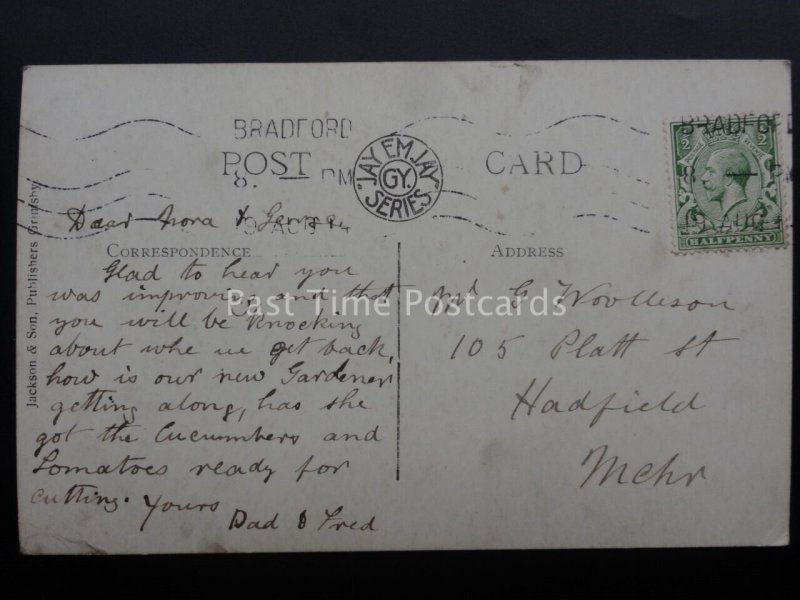 BRADFORD
8. — PM
19 AUG 14
POST CARD
JAY EM JAY
GY.
SERIES
BRADFORD
8 — P
19 AUG 14
HALFPENNY
Jackson & Son, Publishers Grimsby.
Dear Nora &
CORRESPONDENCE
Glad to hear you
was improving and that
you will be knocking
about whe we get back,
how is our new Gardener
getting along, has she
got the Cucumbers and
Tomatoes ready for
cutting.
Yours
Dad & Fred
ADDRESS
Mr G Woolleson
105 Platt st
Hadfield
Mchr
Past Time Postcards